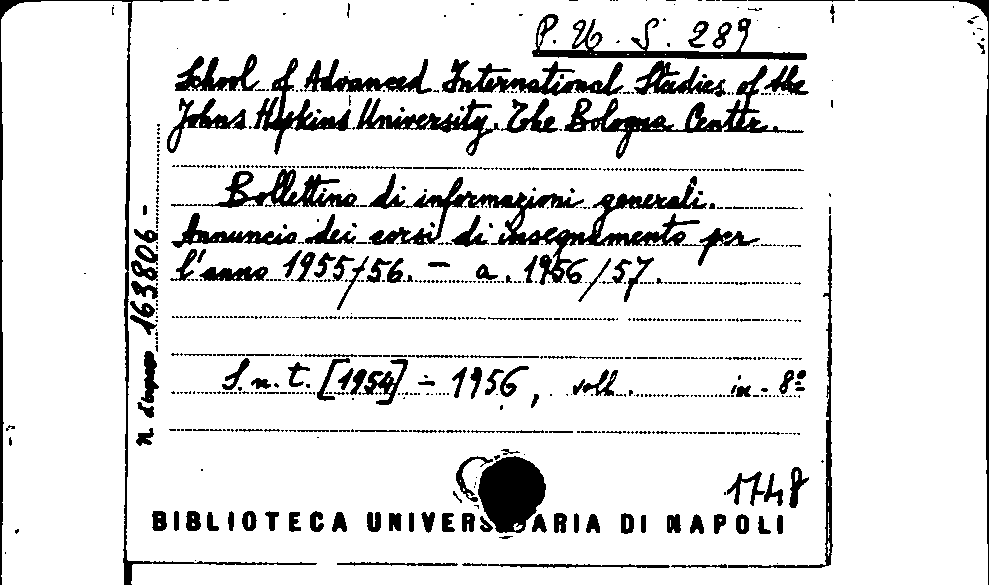 P. U. S. 289
School of Advanced International Studies of the
Johns Hopkins University. The Bologna Center.
Bollettino di informazioni generali.
Annuncio dei corsi di insegnamento per
l'anno 1955/56. - a. 1956/57.
S. n. t. [1954] - 1956, voll. in-8º
n. d'ingresso 163806 -
1748
BIBLIOTECA UNIVERSITARIA DI NAPOLI